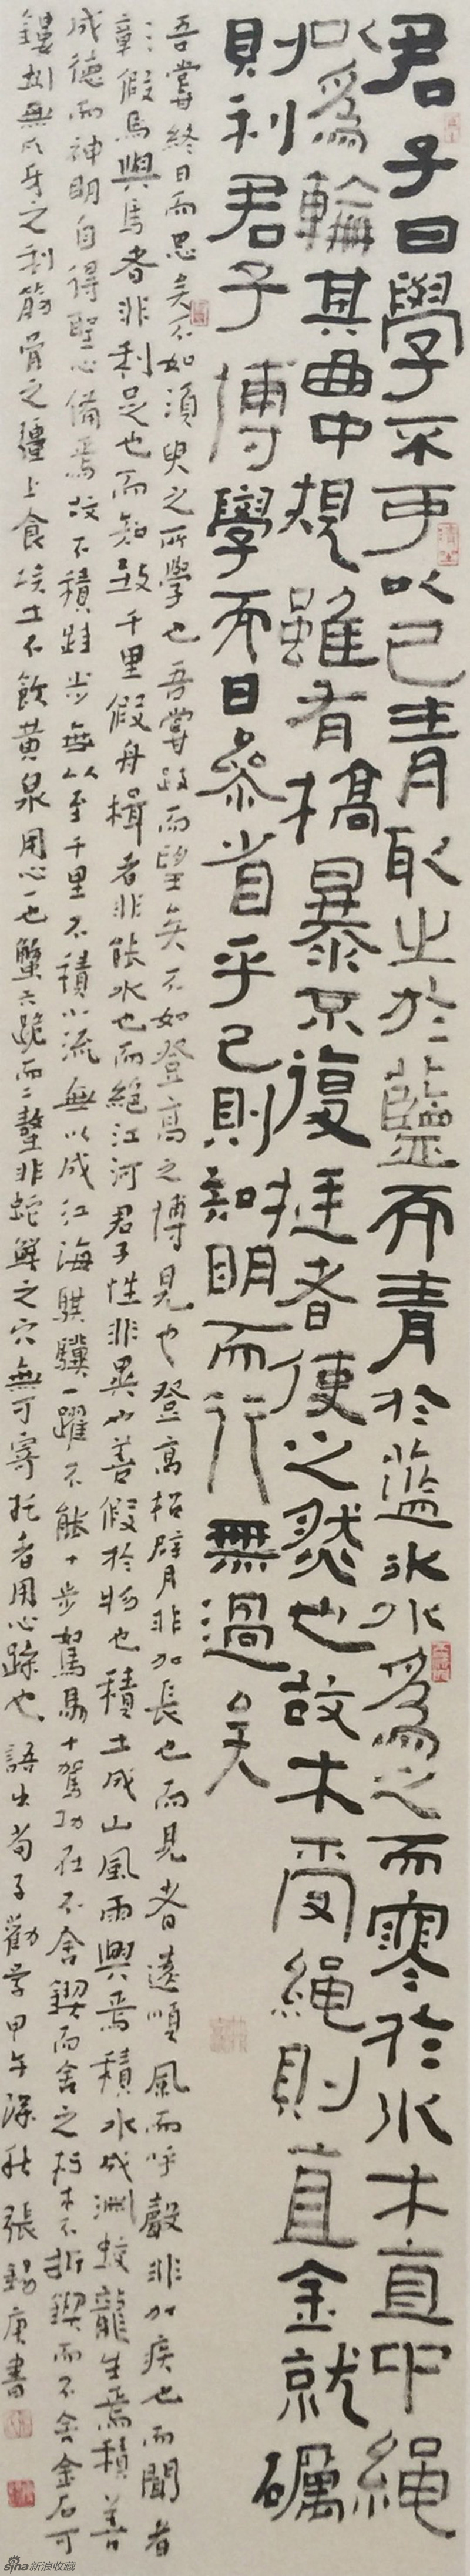 君子曰學不可以已青取之於藍而青於藍冰水爲之而寒於水木直中繩
以爲輪其曲中規雖有槁暴不復挺者使之然也故木受繩則直金就礪
則利君子博學而日參省乎己則知明而行無過矣
吾嘗終日而思矣不如須臾之所學也吾嘗跂而望矣不如登高之博見也登高招臂月非加長也而見者遠順風而呼聲非加疾也而聞者
彰假馬輿馬者非利足也而知致千里假舟楫者非能水也而絕江河君子性非異也善假於物也積土成山風雨興焉積水成淵蛟龍生焉積善
成德而神明自得聖心備焉故不積跬步無以至千里不積小流無以成江海騏驥一躍不能十步駑馬十駕功在不舍鍥而舍之朽木不折鍥而不舍金石可
鏤蚓無爪牙之利筋骨之強上食埃土下飲黃泉用心一也蟹六跪而二螯非蛇鱓之穴無可寄托者用心躁也 語出荀子勸學甲午深秋 張錫庚書
sina新浪收藏